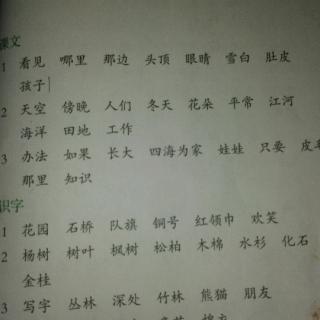 课文
1 看见 哪里 那边 头顶 眼睛 雪白 肚皮
孩子
2 天空 傍晚 人们 冬天 花朵 平常 江河
海洋 田地 工作
3 办法 如果 长大 四海为家 娃娃 只要 皮毛
那里 知识
识字
1 花园 石桥 队旗 铜号 红领巾 欢笑
2 杨树 树叶 枫树 松柏 木棉 水杉 化石
金桂
3 写字 丛林 深处 竹林 熊猫 朋友